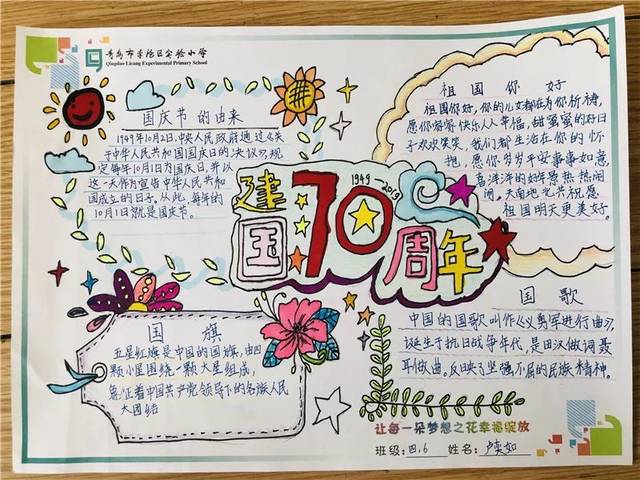 青岛市李沧区实验小学
Qingdao Licang Experimental Primary School
国庆节的由来
1949年10月2日,中央人民政府通过《关
于中华人民共和国国庆日的决议》,规
定每年10月1日为国庆日,并以
这一天作为宣告中华人民共和
国成立的日子。从此,每年的
10月1日就是国庆节。
祖国你好
祖国你好,你的儿女都在为你祈祷,
愿你客客快乐人人幸福,甜蜜蜜的好日
子欢欢笑笑。我们都生活在你的怀
抱,愿你岁岁平安事事如意
喜洋洋的好年景热热闹
闹。天南地北共祝愿
祖国明天更美好。
1949 2019
建国70周年
国歌
中国的国歌叫作《义勇军进行曲》,
诞生于抗日战争年代,是田汉做词聂
耳做曲。反映了坚强不屈的民族精神。
国旗
五星红旗是中国的国旗,由四
颗小星围绕一颗大星组成,
象征着中国共产党领导下的各族人民
大团结
让每一朵梦想之花幸福绽放
班级:四.6 姓名:卢奕如